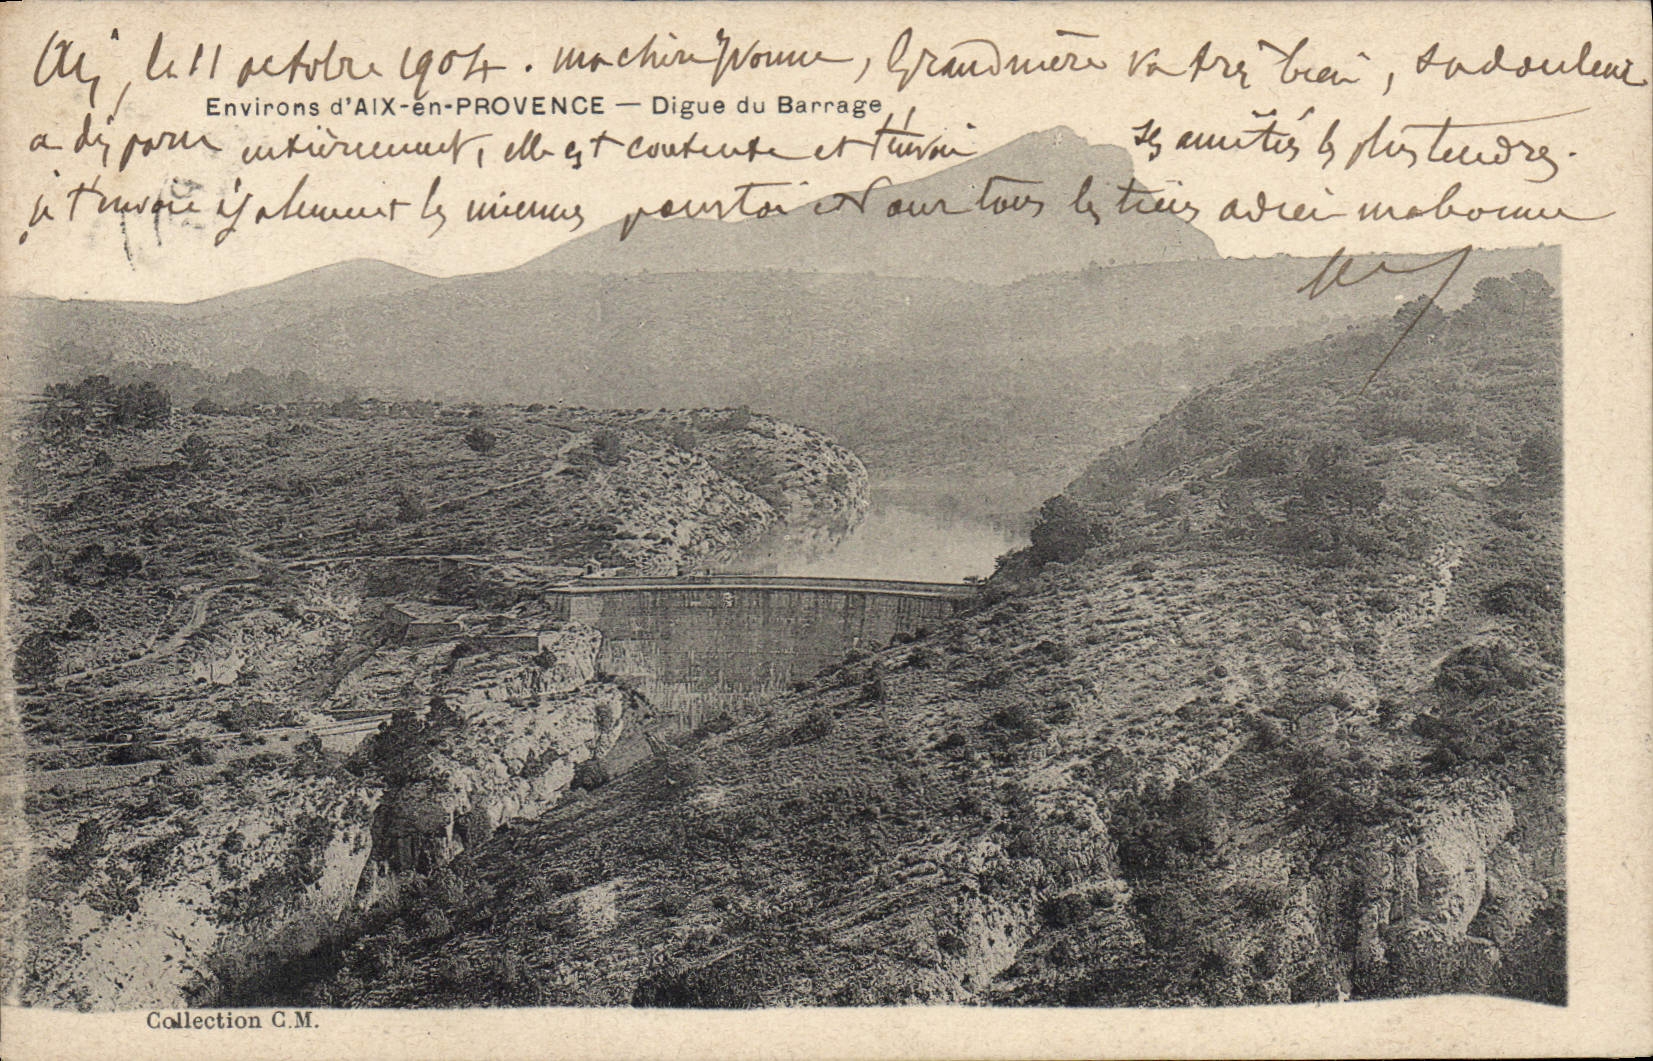 Aix, le 11 octobre 1904. ma chère Yvonne, Grandmère va très bien, sa douleur
Environs d'AIX-en-PROVENCE — Digue du Barrage
a disparu entièrement, elle est contente et t'envoie ses amitiés les plus tendres.
je t'envoie également les miennes pour toi et pour tous les tiens adieu ma bonne
Collection C.M.